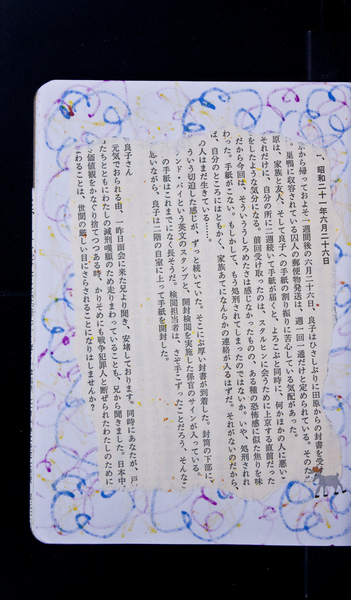 一、昭和二十一年六月二十六日
から帰っておよそ一週間後の六月二十六日、良子はひさしぶりに田原からの封書を受
。巣鴨に収容されている囚人の郵便物発送は、週一回一通だけと定められている。そのた
原は、家族と友人、そして良子への手紙の割り振りに苦心している気配があった。
それだけに、自分の所に二週続いて手紙が届くと、よろこぶと同時に、何かほかの人に悪い
をしたような気分になる。前回受け取ったのは、スタルヒンに会うために上京する直前だった
だから今回は、そういううしろめたさは感じなかったものの、ある種の恐怖感に似た焦りを味
わった。手紙がこない。もしかして、もう処刑されてしまったのではないか。いや、処刑されれ
ば、自分のところにはともかく、家族あてになんらかの連絡が入るはずだ。それがないのだから、
の人はまだ生きている……。
ういう切迫した感じが、ずっと続いていた。そこにぶ厚い封書が到着した。封筒の下部に、
ンド・バイという英文のスタンプと、開封検閲を実施した係官のサインが入っている。
の手紙はこれまでになく長そうだ。検閲担当者は、さぞ手こずったことだろう、そんなこ
思いながら、良子は二階の自室に上って手紙を開封した。
良子さん
元気でおられる由、一昨日面会に来た兄より聞き、安堵しております。同時にあなたが、戸
たちとともにわたしの減刑嘆願のため走りまわっていることも、兄から聞きました。日本中
価値観をかなぐり捨てつつある時、かりそめにも戦争犯罪人と断ぜられたわたしのために
わることは、世間の厳しい目にさらされることになりはしませんか？